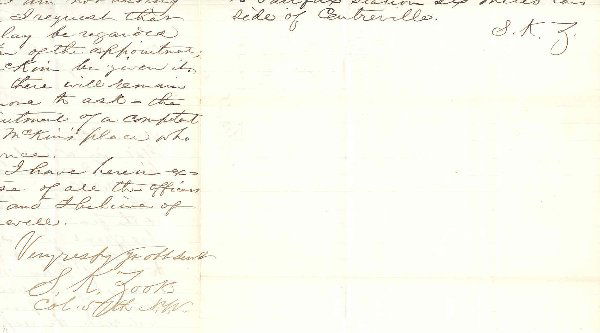 I request that
may be regarded
of the appointment
McKim be given its
there will remain
more to ask - the
ointment of a competent
McKim's place who
once.
I have herein ex=
of all the officers
and I believe of
Very respy Yr obt servt
S. K. Zook
Col. 57th N.Y.
to Fairfax Station six miles
side of Centreville.
S. K. Z.